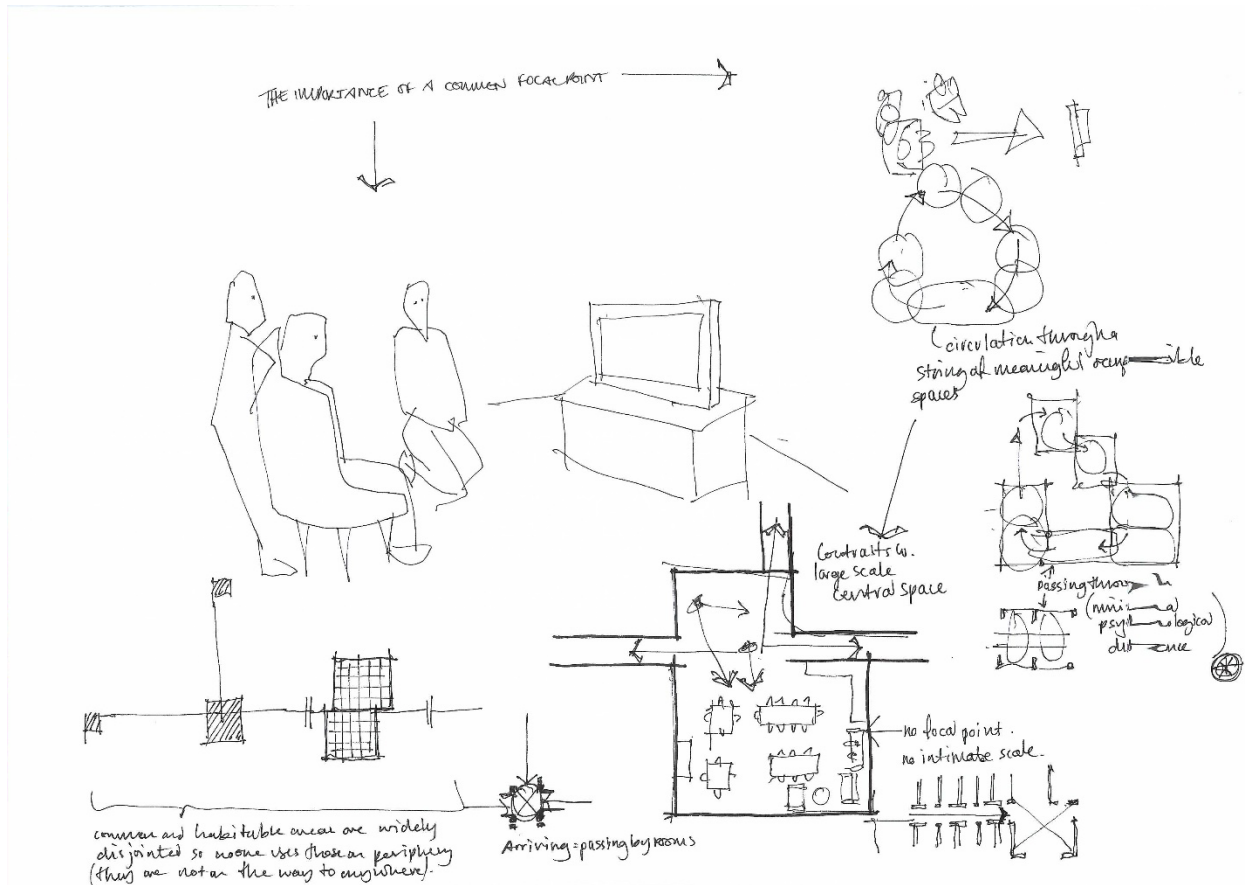 THE IMPORTANCE OF A COMMON FOCAL POINT
circulation through a
string of meaningful
spaces
Contrasts w.
large scale
central space
passing through
no focal point.
no intimate scale.
common and habitable areas are widely
disjointed so no one uses those on periphery
(they are not on the way to anywhere).
Arriving = passing by rooms